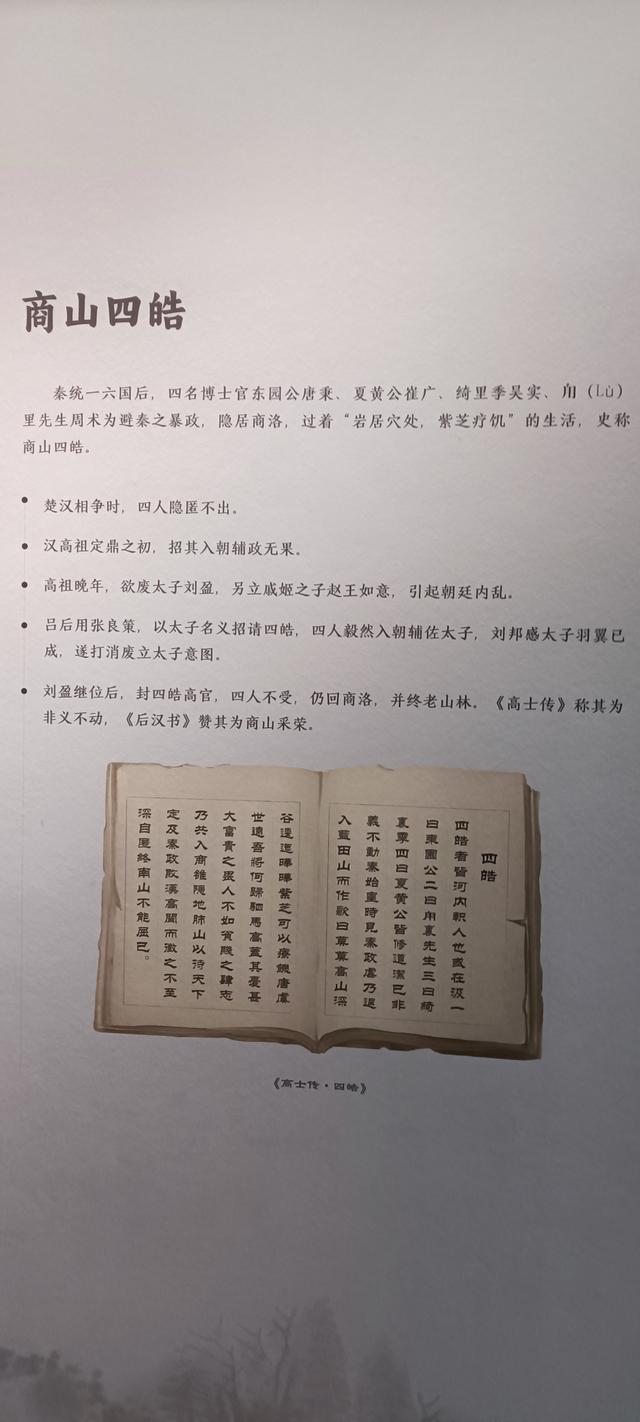 商山四皓
秦统一六国后，四名博士官东园公唐秉、夏黄公崔广、绮里季吴实、甪（Lù）
里先生周术为避秦之暴政，隐居商洛，过着“岩居穴处，紫芝疗饥”的生活，史称
商山四皓。
楚汉相争时，四人隐匿不出。
汉高祖定鼎之初，招其入朝辅政无果。
高祖晚年，欲废太子刘盈，另立戚姬之子赵王如意，引起朝廷内乱。
吕后用张良策，以太子名义招请四皓，四人毅然入朝辅佐太子，刘邦感太子羽翼已
成，遂打消废立太子意图。
刘盈继位后，封四皓高官，四人不受，仍回商洛，并终老山林。《高士传》称其为
非义不动，《后汉书》赞其为商山采荣。
四皓
四皓者皆河内軹人也或在汲一
曰東園公二曰甪裏先生三曰綺
裏季四曰夏黄公皆修道潔己非
義不動秦始皇時見秦政虐乃退
入藍田山而作歌曰莫莫高山深
谷逶迤曄曄紫芝可以療饑唐虞
世遠吾將何歸駟馬高蓋其憂甚
大富貴之畏人不如貧賤之肆志
乃共入商雒隱地肺山以待天下
定及秦政敗漢高聞而徵之不至
深自匿終南山不能屈已。
《高士传·四皓》